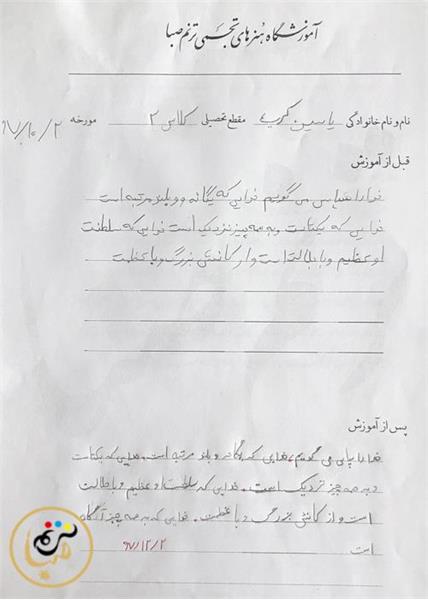 آموزشگاه هنرهای تجسمی ترنم صبا
نام و نام خانوادگی یاسین کریمی مقطع تحصیلی کلاس ۲ مورخه ۹۷/۱۰/۲
قبل از آموزش
خدا را سپاس می گوییم خدایی که یگانه و بلند مرتبه است
خدایی که یکتاست و به همه چیز نزدیک است خدایی که سلطنت
او عظیم و با جلالت است و ارکانش بزرگ و با عظمت
پس از آموزش
خدا را سپاس می گوییم، خدایی که یگانه و بلند مرتبه است. خدایی که یکتاست
و به همه چیز نزدیک است. خدایی که سلطنت او عظیم و با جلالت
است و ارکانش بزرگ و با عظمت. خدایی که به همه چیز آگاه
است ۹۷/۱۲/۲
ترنم
صبا